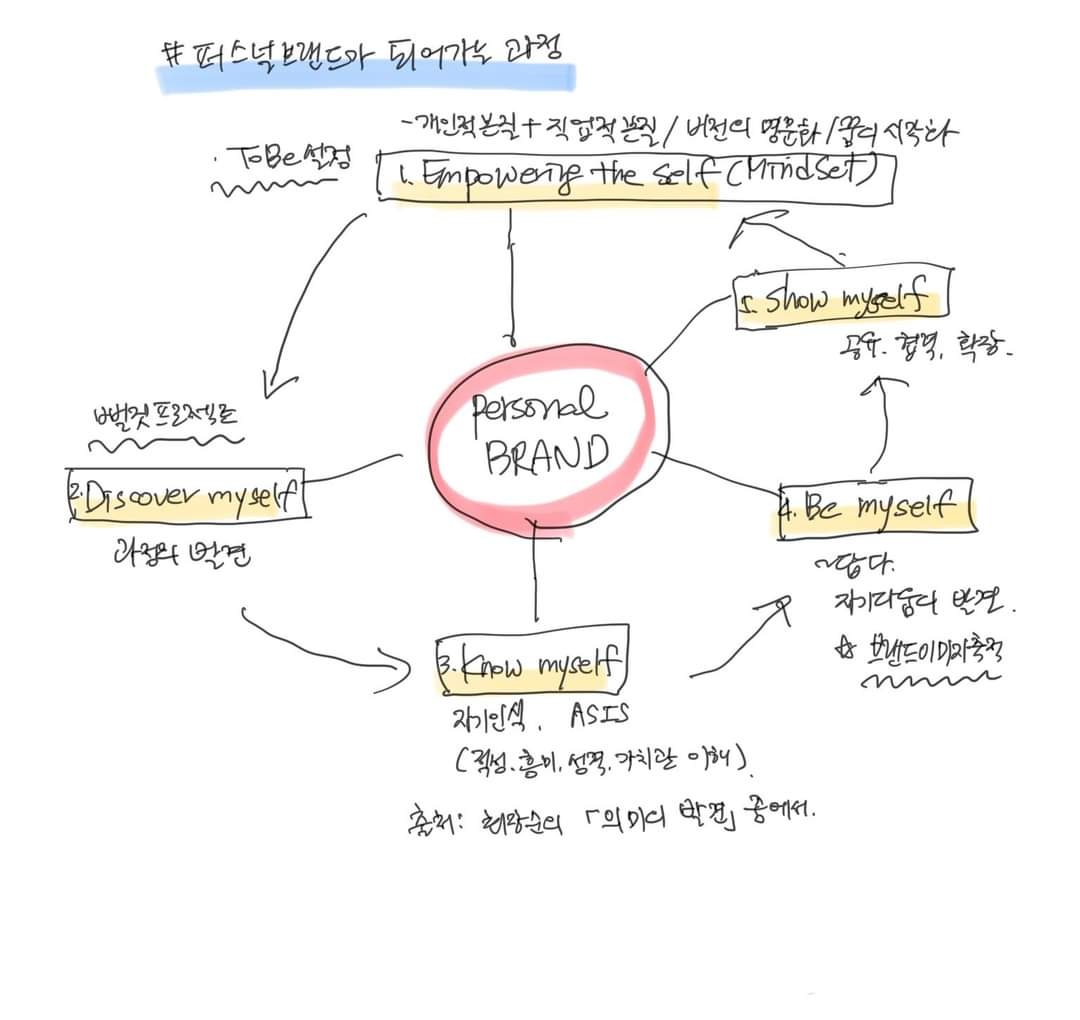 # 퍼스널브랜드가 되어가는 과정
- 개인적본질 + 직업적본질 / 비전의 명문화 / 꿈의 시각화
· ToBe설정
1. Empowering the self (Mindset)
5. Show myself
공유. 협력, 확장.
personal
BRAND
빼벌킷프로젝트
2. Discover myself
과정의 발견
4. Be myself
~답다.
자기다움의 발견.
☆ 브랜드이미지축적
3. Know myself
자기인식, ASIS
(적성, 흥미, 성격, 가치관 이해).
출처: 최장순의 「의미의 발견」 중에서.